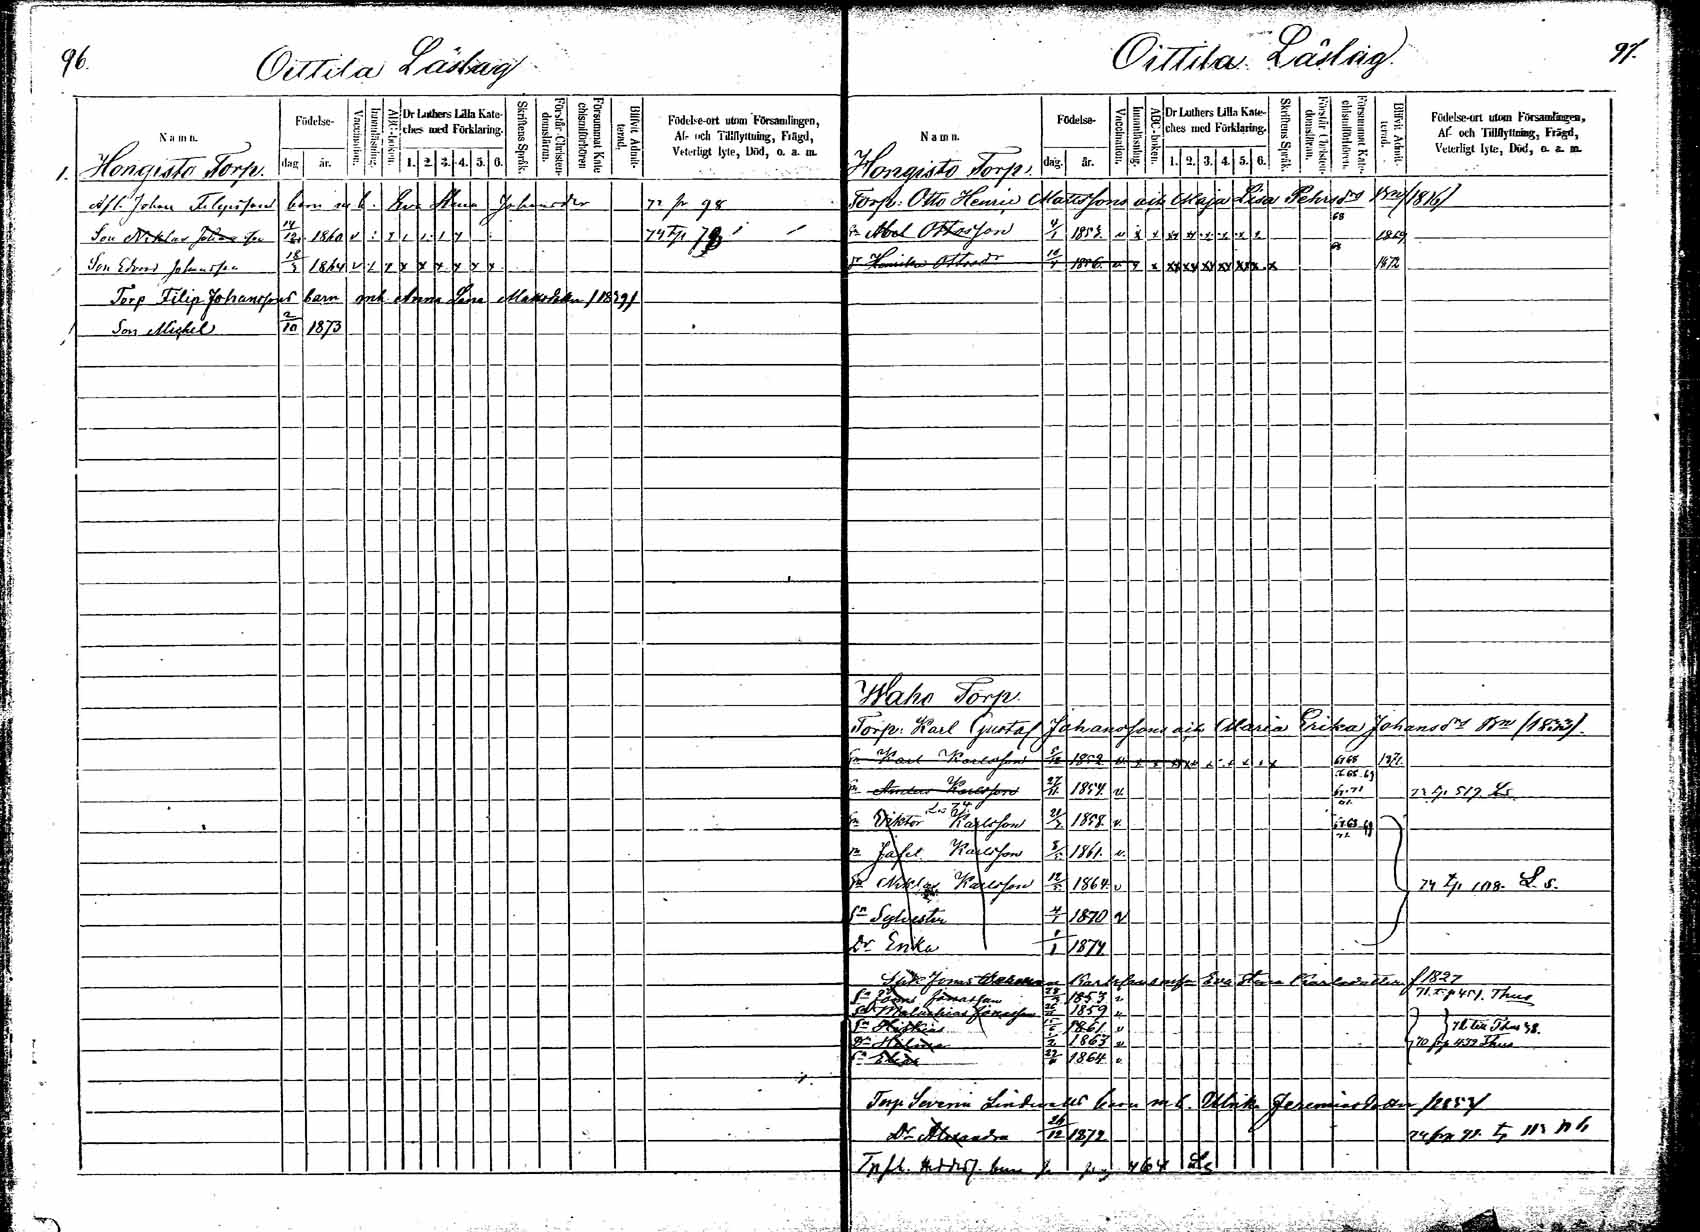 96.
Oittila Läslag
Namn.
Födelse-
dag
år.
Vaccination.
Innanläsning.
ABC-boken.
Dr Luthers Lilla Kate-
ches med Förklaring.
1. 2. 3. 4. 5. 6.
Skriftens Språk.
Förstår Christen-
domsläran.
Försummat Kate
chismiförhören
Blifvit Admit-
terad.
Födelse-ort utom Församlingen,
Af- och Tillflyttning, Frägd,
Veterligt lyte, Död, o. a. m.
1. Hongisto Torp.
Afl. Johan Filipssons barn m h. Eva Stina Johansdr 72 fr 98
Son Niklas Johansson 14/12 1860 v 74 Tp 78
Son Edvard Johansson 18/3 1864 v x x x x x x x
Torp Filip Johanssons barn mh. Anna Lena Mattsdotter /1839/
1 Son Mickel 2/10 1873
97.
Oittila Läslag.
Namn.
Födelse-
dag.
år.
Vaccination.
Innanläsning.
ABC-boken.
Dr Luthers Lilla Kate-
ches med Förklaring.
1. 2. 3. 4. 5. 6.
Skriftens Språk.
Förstår Christen-
domsläran.
Försummat Kate-
chismiförhören.
Blifvit Admit-
terad.
Födelse-ort utom Församlingen,
Af- och Tillflyttning, Frägd,
Veterligt lyte, Död, o. a. m.
Hongisto Torp.
Torp: Otto Henric Mattssons och Maja Lisa Pehrsdrs Brn /1816/
Sn Abel Ottosson 4/1 1853. v x x xx x x x x x 68 1869
Dr Henrika Ottosdr 10/4 1856. v x x xx xx xx xx xxx x 1872
Waho Torp.
Torp: Karl Gustaf Johanssons och Maria Erika Johansdrs Brn /1833/.
Sn Karl Karlsson 1852 v x x xx xx x x x x x 67 68 1871.
Sn Anders Karlsson 27/11 1854. v. 72 fp 519. Ls
Sn Viktor Karlsson 21/3 1858. v.
Sn Jafet Karlsson 3/5 1861. v.
Sn Niklas Karlsson 12/5 1864. v 74 tp 108. L. s.
Sn Sylvester 4/1 1870 v
Dr Erika 1/1 1874.
Jonas Karlssons Eva Stina Karlsdotter /1827
Sn Jonas Jonasson 1853 v 71. t. p 451. Thus
Sn Malachias Jonasson 1859 v
Sn Hiskias 1861 v
Dr Helena 1863 v 70 pp 432 Thus
Sn Elias 1864 v
Torp Severin Lindwalls barn m h. Ulrika Jeremiasdotter /1854
Dr Alexandra 26/12 1872
464 Ls